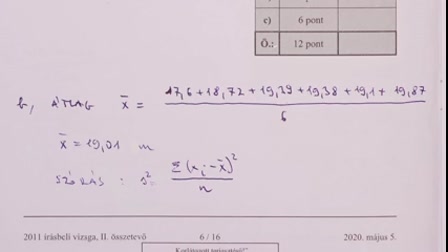 c) 6 pont
Ö.: 12 pont
b, ÁTLAG x̄ = (17,6+18,72+19,39+19,38+19,1+19,87)/6
x̄ = 19,01 m
SZÓRÁS : s² = Σ(xᵢ-x̄)²/n
2011 írásbeli vizsga, II. összetevő 6 / 16 2020. május 5.